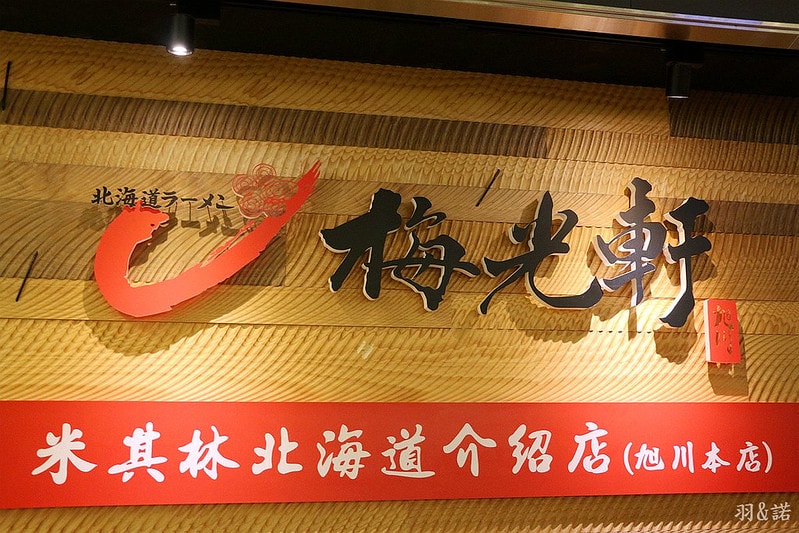 北海道ラーメン
梅光軒
旭川
米其林北海道介紹店(旭川本店)
羽&諾